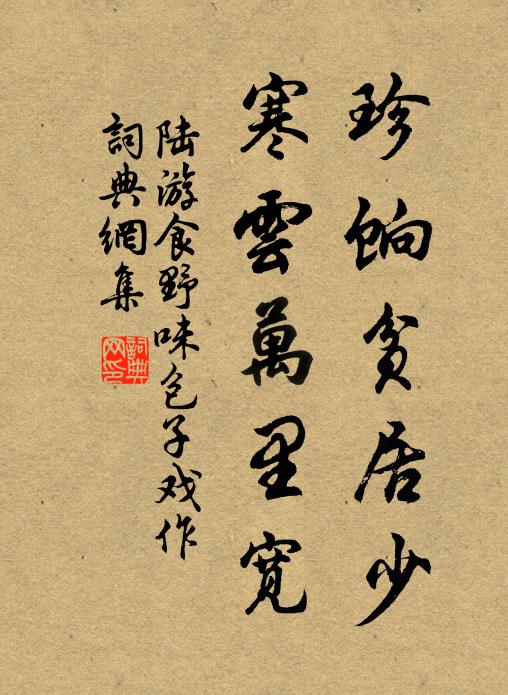 珍餉貧居少
寒雲萬里寬
陆游食野味包子戏作
詞典網集
詞典網印